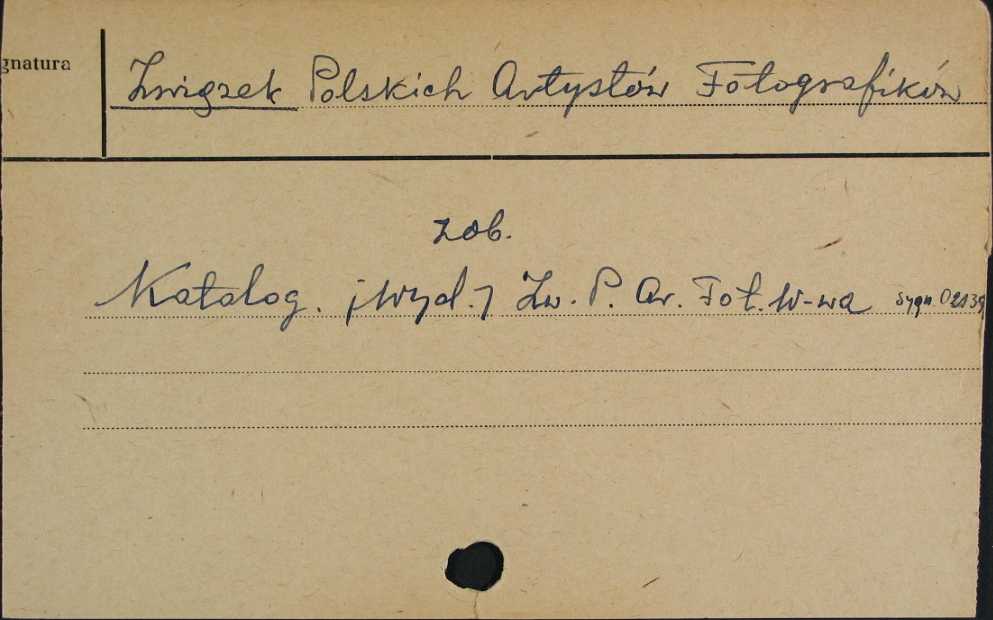 gnatura
Związek Polskich Artystów Fotografików
zob.
Katalog. [Wyd.] Zw. P. Ar. Fot. W-wa sygn. 02139